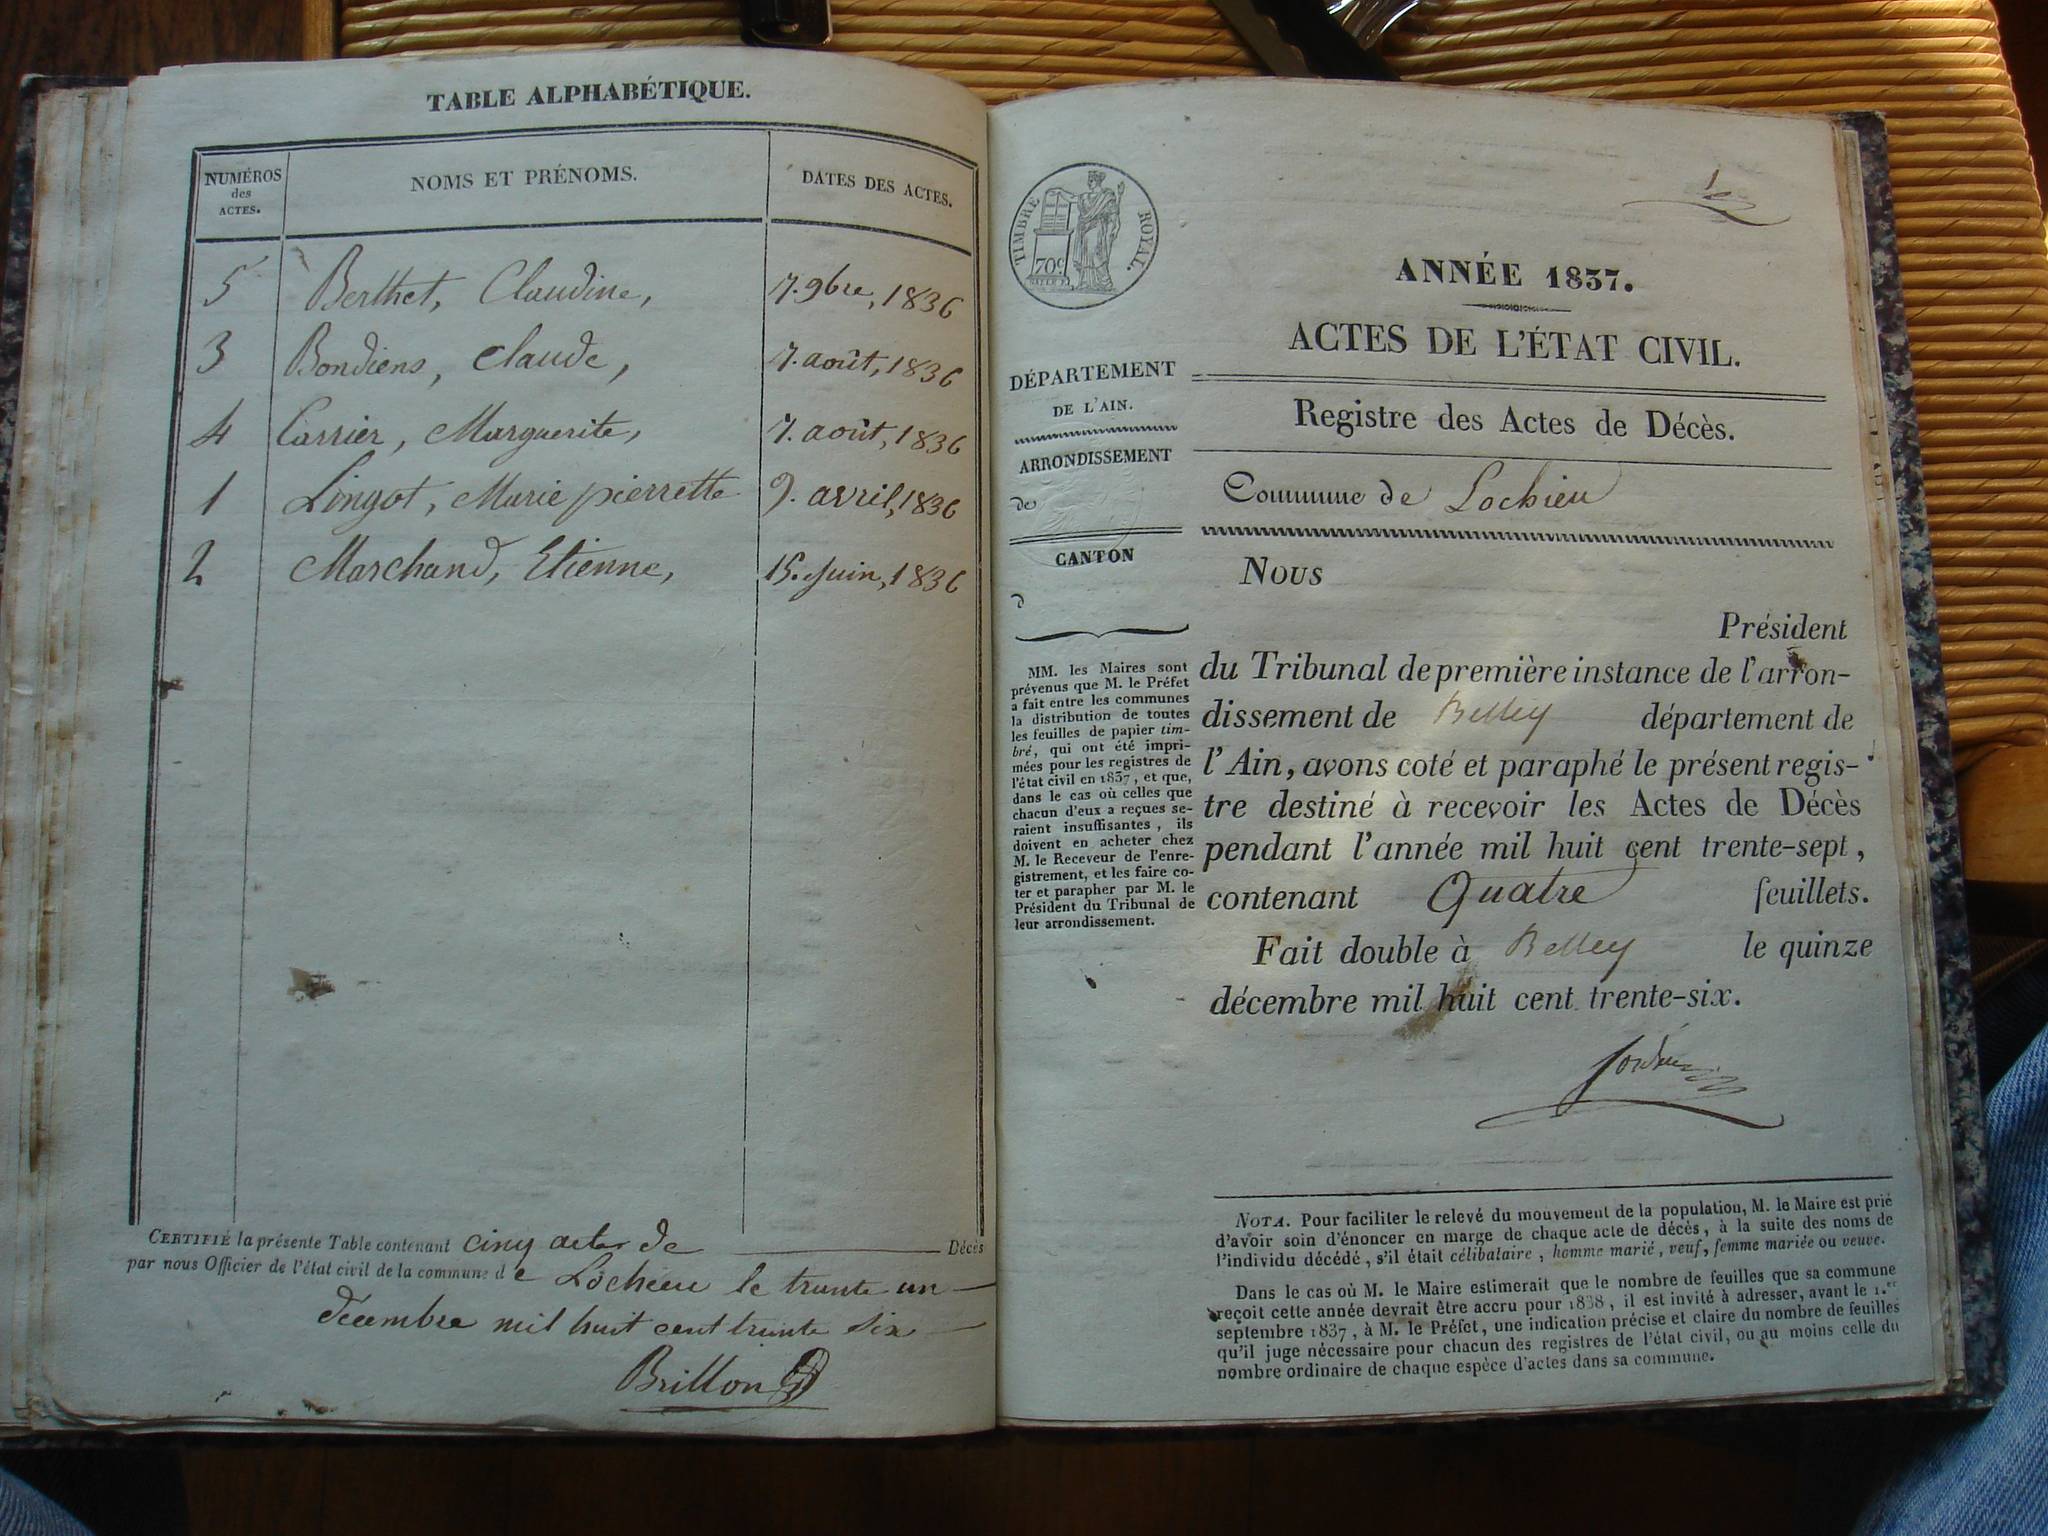 TABLE ALPHABÉTIQUE.
NUMÉROS
des
ACTES.
NOMS ET PRÉNOMS.
DATES DES ACTES.
5 Berthet, Claudine, 7. 9bre, 1836
3 Bondiens, Claude, 7. août, 1836
4 Carrier, Marguerite, 7. août, 1836
1 Lingot, Marie pierrette 9. avril, 1836
2 Marchand, Etienne, 15. Juin, 1836
CERTIFIÉ la présente Table contenant cinq actes de Décès
par nous Officier de l'état civil de la commune de Lochieu le trente un
décembre mil huit cent trente six
Brillon
TIMBRE ROYAL.
70c
DÉPARTEMENT
DE L'AIN.
ARRONDISSEMENT
de
CANTON
d
MM. les Maires sont
prévenus que M. le Préfet
a fait entre les communes
la distribution de toutes
les feuilles de papier tim-
bré, qui ont été impri-
mées pour les registres de
l'état civil en 1837, et que,
dans le cas où celles que
chacun d'eux a reçues se-
raient insuffisantes, ils
doivent en acheter chez
M. le Receveur de l'enre-
gistrement, et les faire co-
ter et parapher par M. le
Président du Tribunal de
leur arrondissement.
ANNÉE 1837.
ACTES DE L'ÉTAT CIVIL.
Registre des Actes de Décès.
Commune de Lochieu
NOUS
Président
du Tribunal de première instance de l'arron-
dissement de Belley département de
l'Ain, avons coté et paraphé le présent regis-
tre destiné à recevoir les Actes de Décès
pendant l'année mil huit cent trente-sept,
contenant Quatre feuillets.
Fait double à Belley le quinze
décembre mil huit cent trente-six.
NOTA. Pour faciliter le relevé du mouvement de la population, M. le Maire est prié
d'avoir soin d'énoncer en marge de chaque acte de décès, à la suite des noms de
l'individu décédé, s'il était célibataire, homme marié, veuf, femme mariée ou veuve.
Dans le cas où M. le Maire estimerait que le nombre de feuilles que sa commune
reçoit cette année devrait être accru pour 1838, il est invité à adresser, avant le 1.er
septembre 1837, à M. le Préfet, une indication précise et claire du nombre de feuilles
qu'il juge nécessaire pour chacun des registres de l'état civil, ou au moins celle du
nombre ordinaire de chaque espèce d'actes dans sa commune.